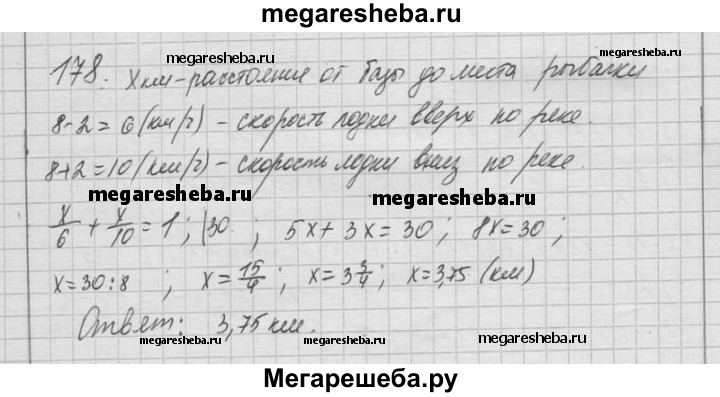 megaresheba.ru
178. x км - расстояние от базы до места рыбалки
megaresheba.ru megaresheba.ru
8-2=6 (км/ч) - скорость лодки вверх по реке.
8+2=10 (км/ч) - скорость лодки вниз по реке.
megaresheba.ru megaresheba.ru
x/6 + x/10 = 1; |30 ; 5x+3x=30; 8x=30;
x=30:8 ; x=15/4; x=3 3/4; x=3,75 (км)
megaresheba.ru megaresheba.ru
Ответ: 3,75 км.
megaresheba.ru
Мегарешеба.ру